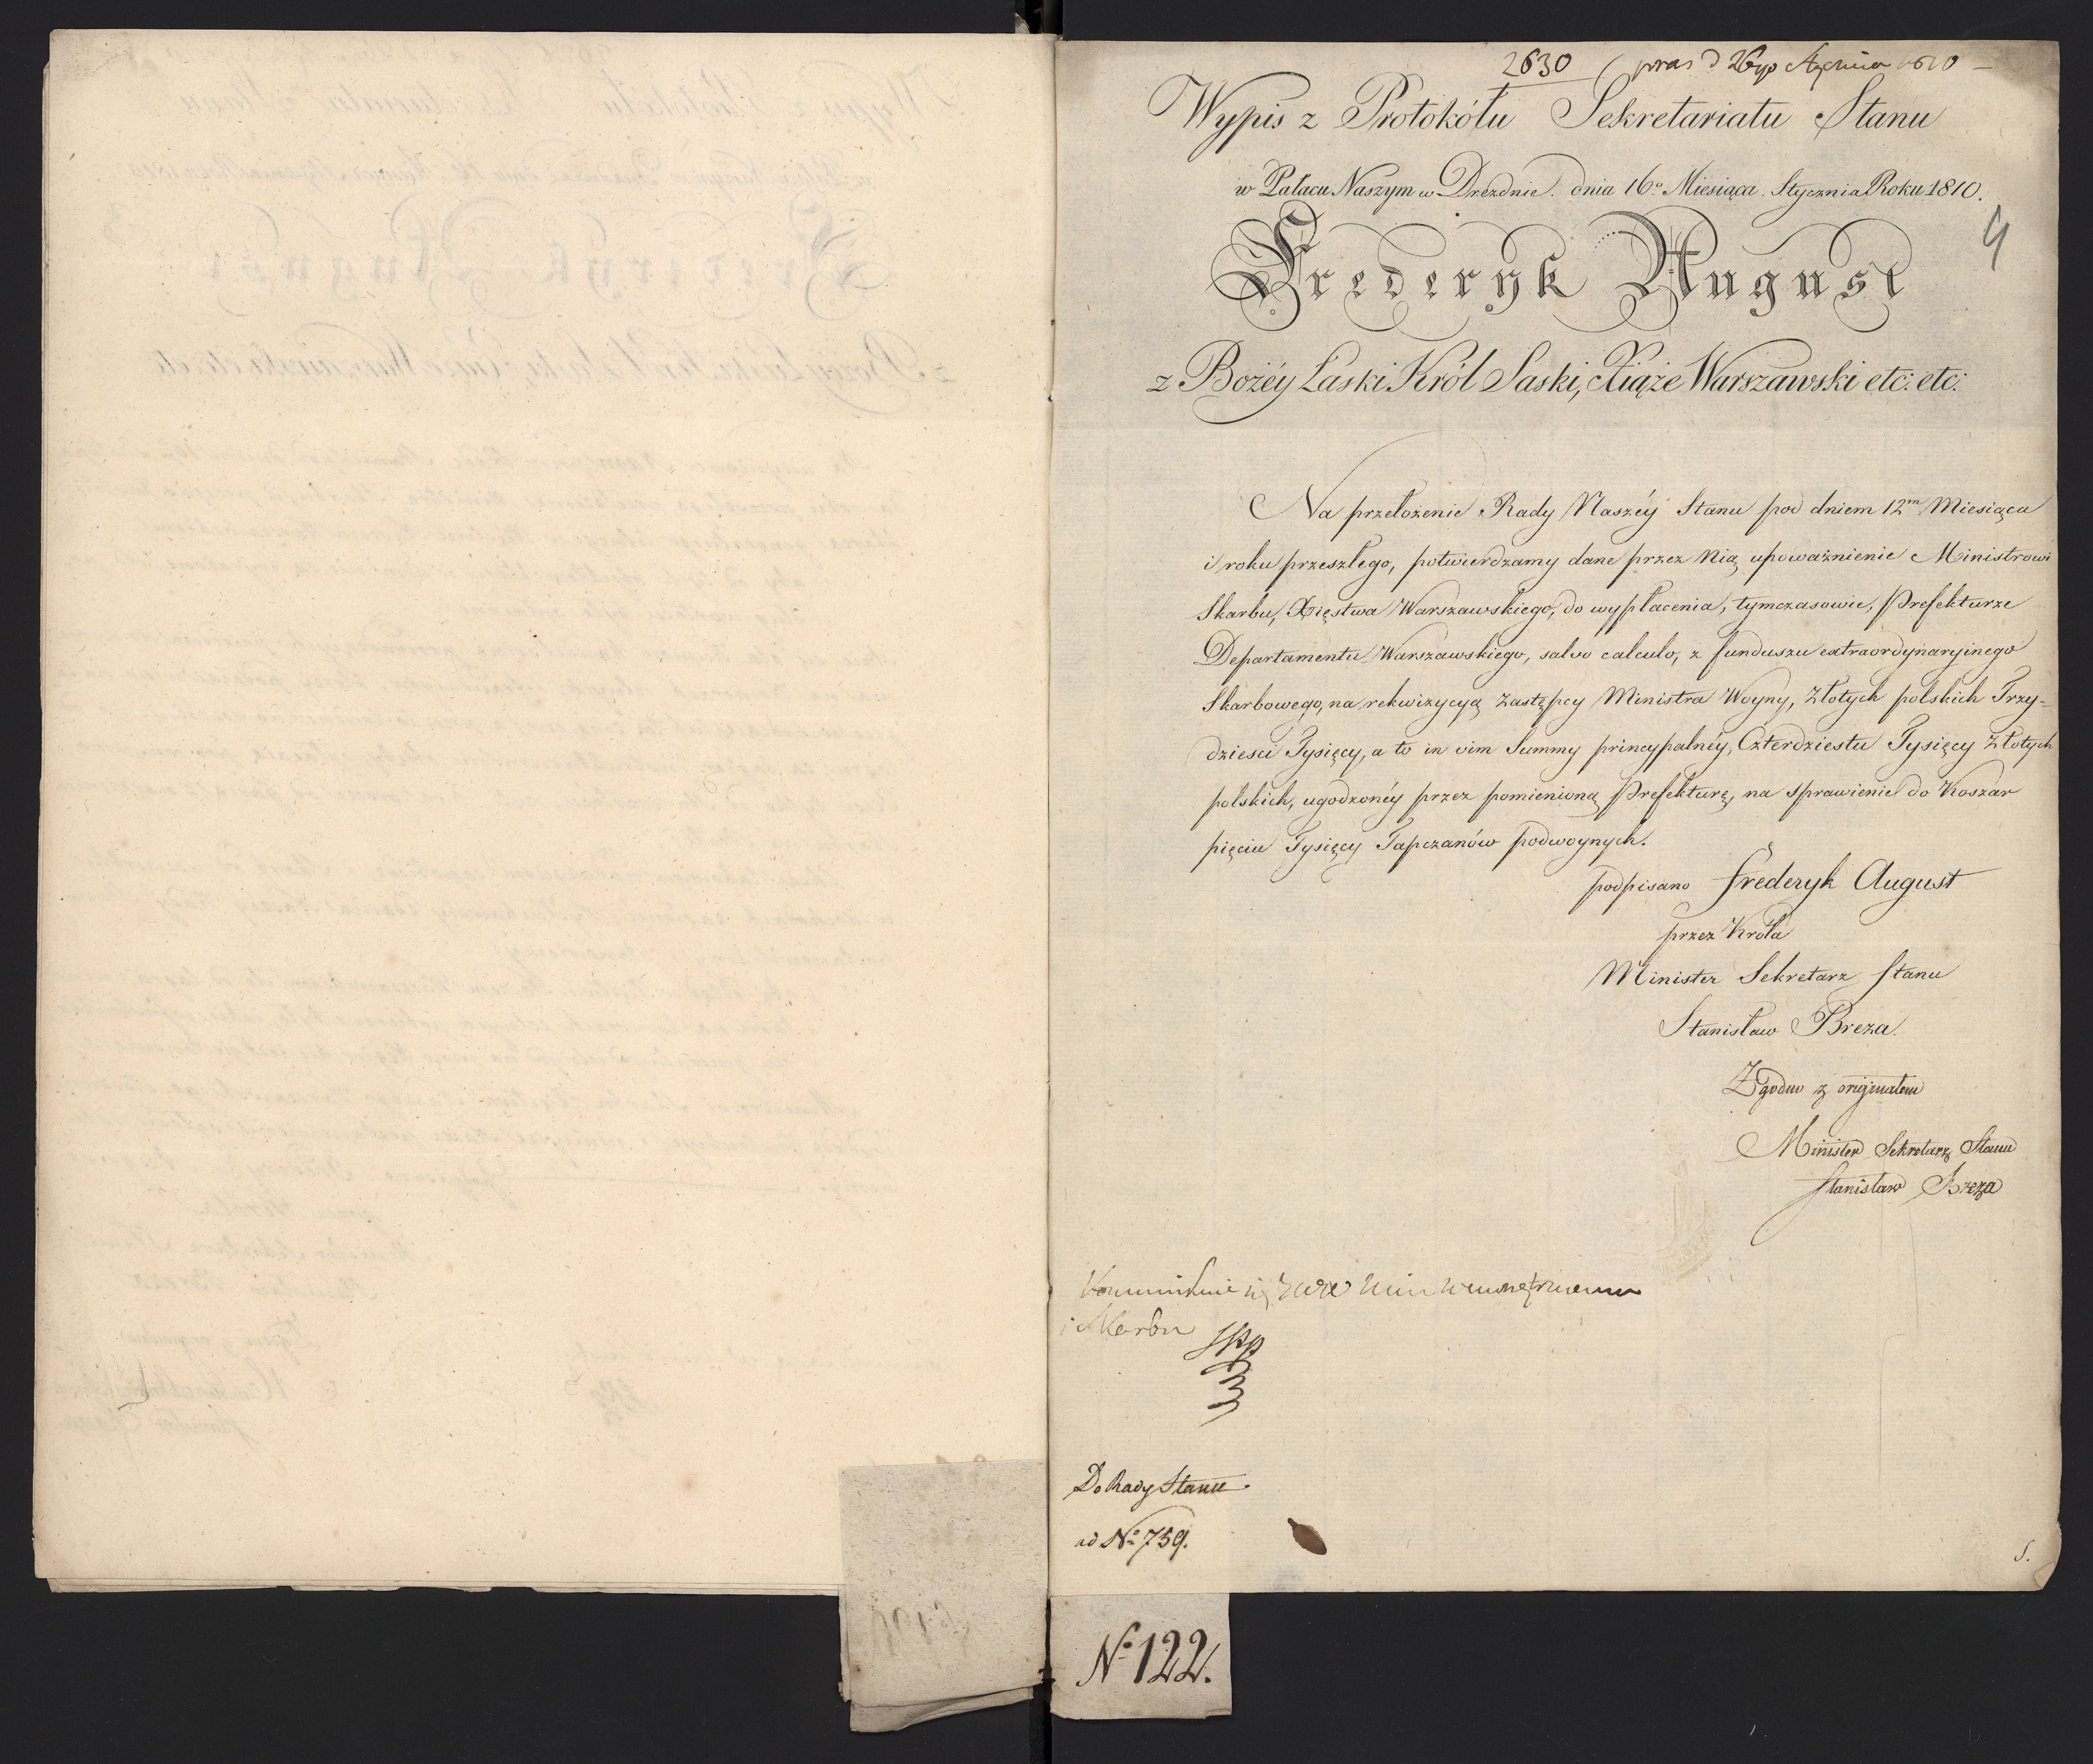 2630 pras d 26go Stycznia 1810
Wypis z Protokółu Sekretariatu Stanu
w Pałacu Naszym w Dreznie. dnia 16o Miesiąca Stycznia Roku 1810.
4
Frederyk August
z Bożéy Łaski Król Saski, Xiąże Warszawski etc: etc:
Na przełożenie Rady Naszéy Stanu pod dniem 12m Miesiąca
i roku przeszłego, potwierdzamy dane przez Nią upoważnienie Ministrowi
Skarbu, Xięstwa Warszawskiego, do wypłacenia, tymczasowie, Prefekturze
Departamentu Warszawskiego, salvo calculo, z funduszu extraordynaryinego
Skarbowego, na rekwizycyą Zastępcy Ministra Woyny, Złotych polskich Trzy-
dziesci Tysięcy, a to in vim Summy princypalnéy, Czterdziestu Tysięcy Złotych
polskich, ugodzonéy przez pomienioną Prefekturę, na sprawienie do Koszar
pięciu Tysięcy Tapczanów podwoynych.
podpisano Frederyk August
przez Króla
Minister Sekretarz Stanu
Stanisław Breza.
Zgodno z originałem
Minister Sekretarz Stanu
Stanisław Breza
i Skarbu
Do Rady Stanu.
ad No 759.
S.
No 122.